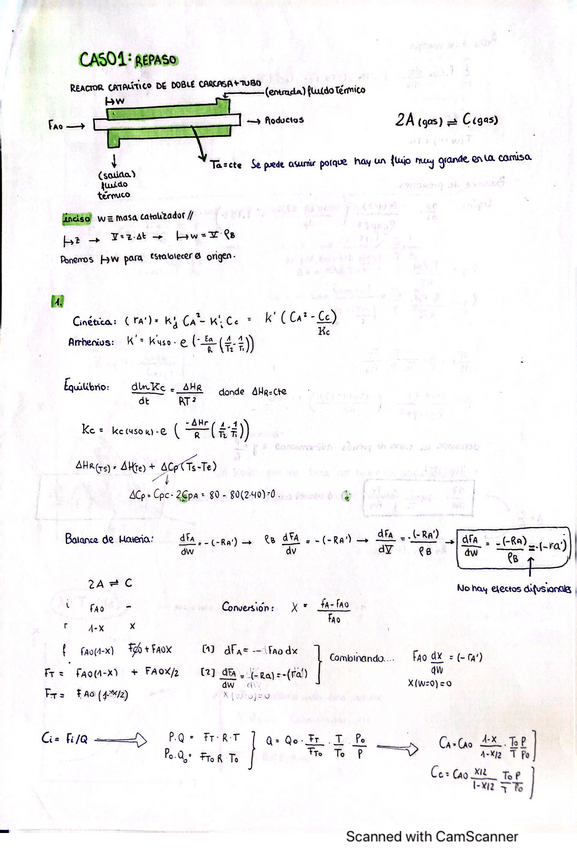 CASO1: REPASO
REACTOR CATALÍTICO DE DOBLE CARCASA + TUBO
↦W
(entrada) fluido Térmico
FAO → → Productos
2A (gas) ⇌ C (gas)
(salida)
fluido
térmico
Ta = cte Se puede asumir porque hay un flujo muy grande en la camisa
inciso W ≡ masa catalizador //
↦z → V = z · At → ↦W = V · ρB
Ponemos ↦W para establecer origen.
1.
Cinética: (rA') = K'd CA² - K'i Cc = K' (CA² - Cc/Kc)
Arrhenius: K' = K'450 · e (-Ea/R (1/T2 - 1/T1))
Equilibrio: dlnKc/dt = ΔHR/RT² donde ΔHR = cte
Kc = Kc(450K) · e (-ΔHr/R (1/T2 - 1/T1))
ΔHR(Ts) = ΔH(Te) + ΔCp(Ts-Te)
ΔCp = Cpc - 2CpA = 80 - 80(2·40) = 0
Balance de Materia: dFA/dW = -(-RA') → ρB dFA/dV = -(-RA') → dFA/dV = -(-RA')/ρB → dFA/dW = -(-RA)/ρB = -(-ra')
No hay efectos difusionales
2A ⇌ C
i FAO -
r 1-X X
Conversión: X = FA-FAO/FAO
f FAO(1-X) + FAOX
[1] dFA = - FAO dx
FT = FAO(1-X) + FAOX/2
[2] dFA/dW = -(-Ra) = -(-ra')
Combinando.... FAO dx/dW = (-rA')
X(W=0)=0
FT = FAO (1-X/2)
X(W=0)=0
Ci = Fi/Q
P·Q = FT·R·T
Po·Qo = FTO R To
Q = Qo · FT/FTO · T/To · Po/P
CA = CAO 1-X/1-X/2 · To/T P/Po
Cc = CAO X/2/1-X/2 To/T P/Po
Scanned with CamScanner